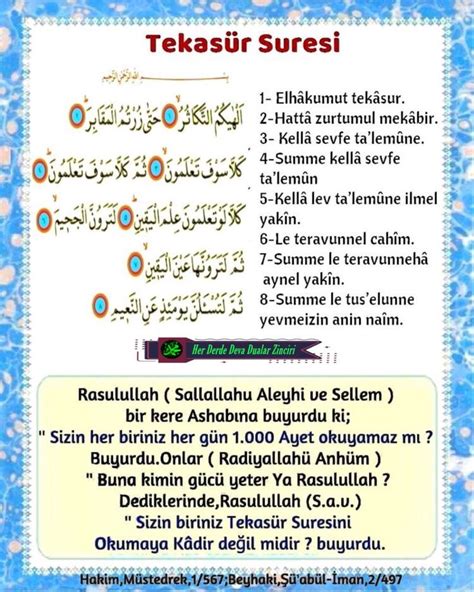 Tekasür Suresi
بِسْمِ اللّٰهِ الرَّحْمٰنِ الرَّحِيمِ
اَلْهٰيكُمُ التَّكَاثُرُ ﴿١﴾ حَتّٰى زُرْتُمُ الْمَقَابِرَ ﴿٢﴾
كَلَّا سَوْفَ تَعْلَمُونَ ﴿٣﴾ ثُمَّ كَلَّا سَوْفَ تَعْلَمُونَ ﴿٤﴾
كَلَّا لَوْ تَعْلَمُونَ عِلْمَ الْيَقِينِ ﴿٥﴾ لَتَرَوُنَّ الْجَحِيمَ ﴿٦﴾
ثُمَّ لَتَرَوُنَّهَا عَيْنَ الْيَقِينِ ﴿٧﴾
ثُمَّ لَتُسْـَٔلُنَّ يَوْمَئِذٍ عَنِ النَّعِيمِ ﴿٨﴾
1- Elhâkumut tekâsur.
2-Hattâ zurtumul mekâbir.
3- Kellâ sevfe ta’lemûne.
4-Summe kellâ sevfe
ta’lemûn
5-Kellâ lev ta’lemûne ilmel
yakîn.
6-Le teravunnel cahîm.
7-Summe le teravunnehâ
aynel yakîn.
8-Summe le tus’elunne
yevmeizin anin naîm.
Her Derde Deva Dualar Zinciri
Rasulullah ( Sallallahu Aleyhi ve Sellem )
bir kere Ashabına buyurdu ki;
" Sizin her biriniz her gün 1.000 Ayet okuyamaz mı ?
Buyurdu.Onlar ( Radiyallahü Anhüm )
" Buna kimin gücü yeter Ya Rasulullah ?
Dediklerinde,Rasulullah (S.a.v.)
" Sizin biriniz Tekasür Suresini
Okumaya Kâdir değil midir ? buyurdu.
Hakim,Müstedrek,1/567;Beyhaki,Şü'abül-İman,2/497